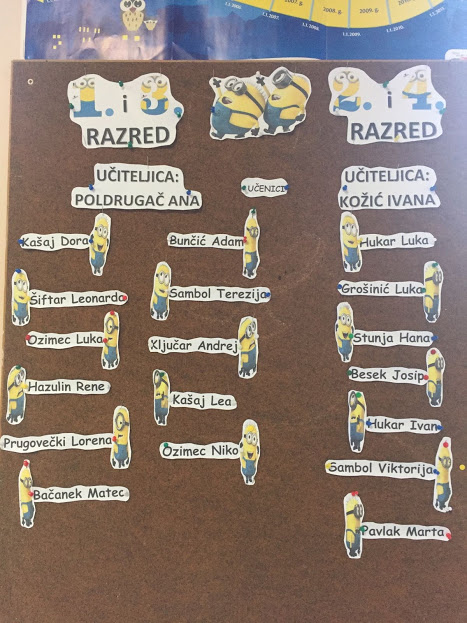 2007. g
2008. g
2009. g
2010. g
1.1.2007.
1.1.2008.
1.1.2009.
1.1.2010.
1. i 3.
RAZRED
2. i 4.
RAZRED
UČITELJICA:
POLDRUGAČ ANA
UČENICI
UČITELJICA:
KOŽIĆ IVANA
Kašaj Dora
Šiftar Leonardo
Ozimec Luka
Hazulin Rene
Prugovečki Lorena
Bačanek Matec
Bunčić Adam
Sambol Terezija
Ključar Andrej
Kašaj Lea
Ozimec Niko
Hukar Luka
Grošinić Luka
Stunja Hana
Besek Josip
Hukar Ivan
Sambol Viktorija
Pavlak Marta